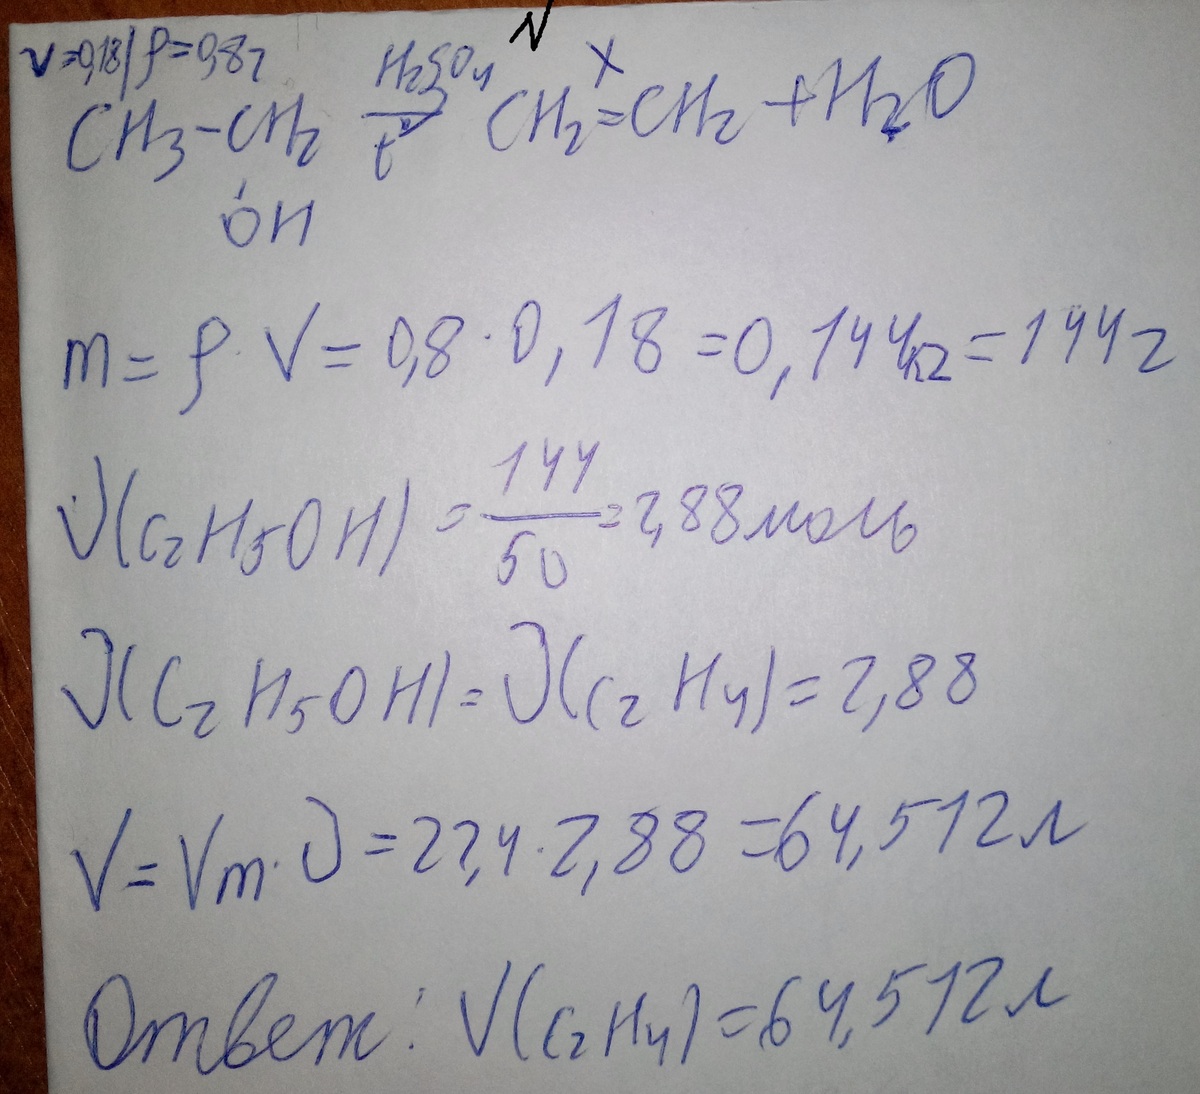 N
V=0,18 ρ=0,8г
CH₃-CH₂ H₂SO₄ t° → CH₂=CH₂ + H₂O
X
OH
m = ρ · V = 0,8 · 0,18 = 0,144кг = 144г
ν(C₂H₅OH) = 144/50 = 2,88моль
ν(C₂H₅OH) = ν(C₂H₄) = 2,88
V = Vm · ν = 22,4 · 2,88 = 64,512л
Ответ: V(C₂H₄) = 64,512л